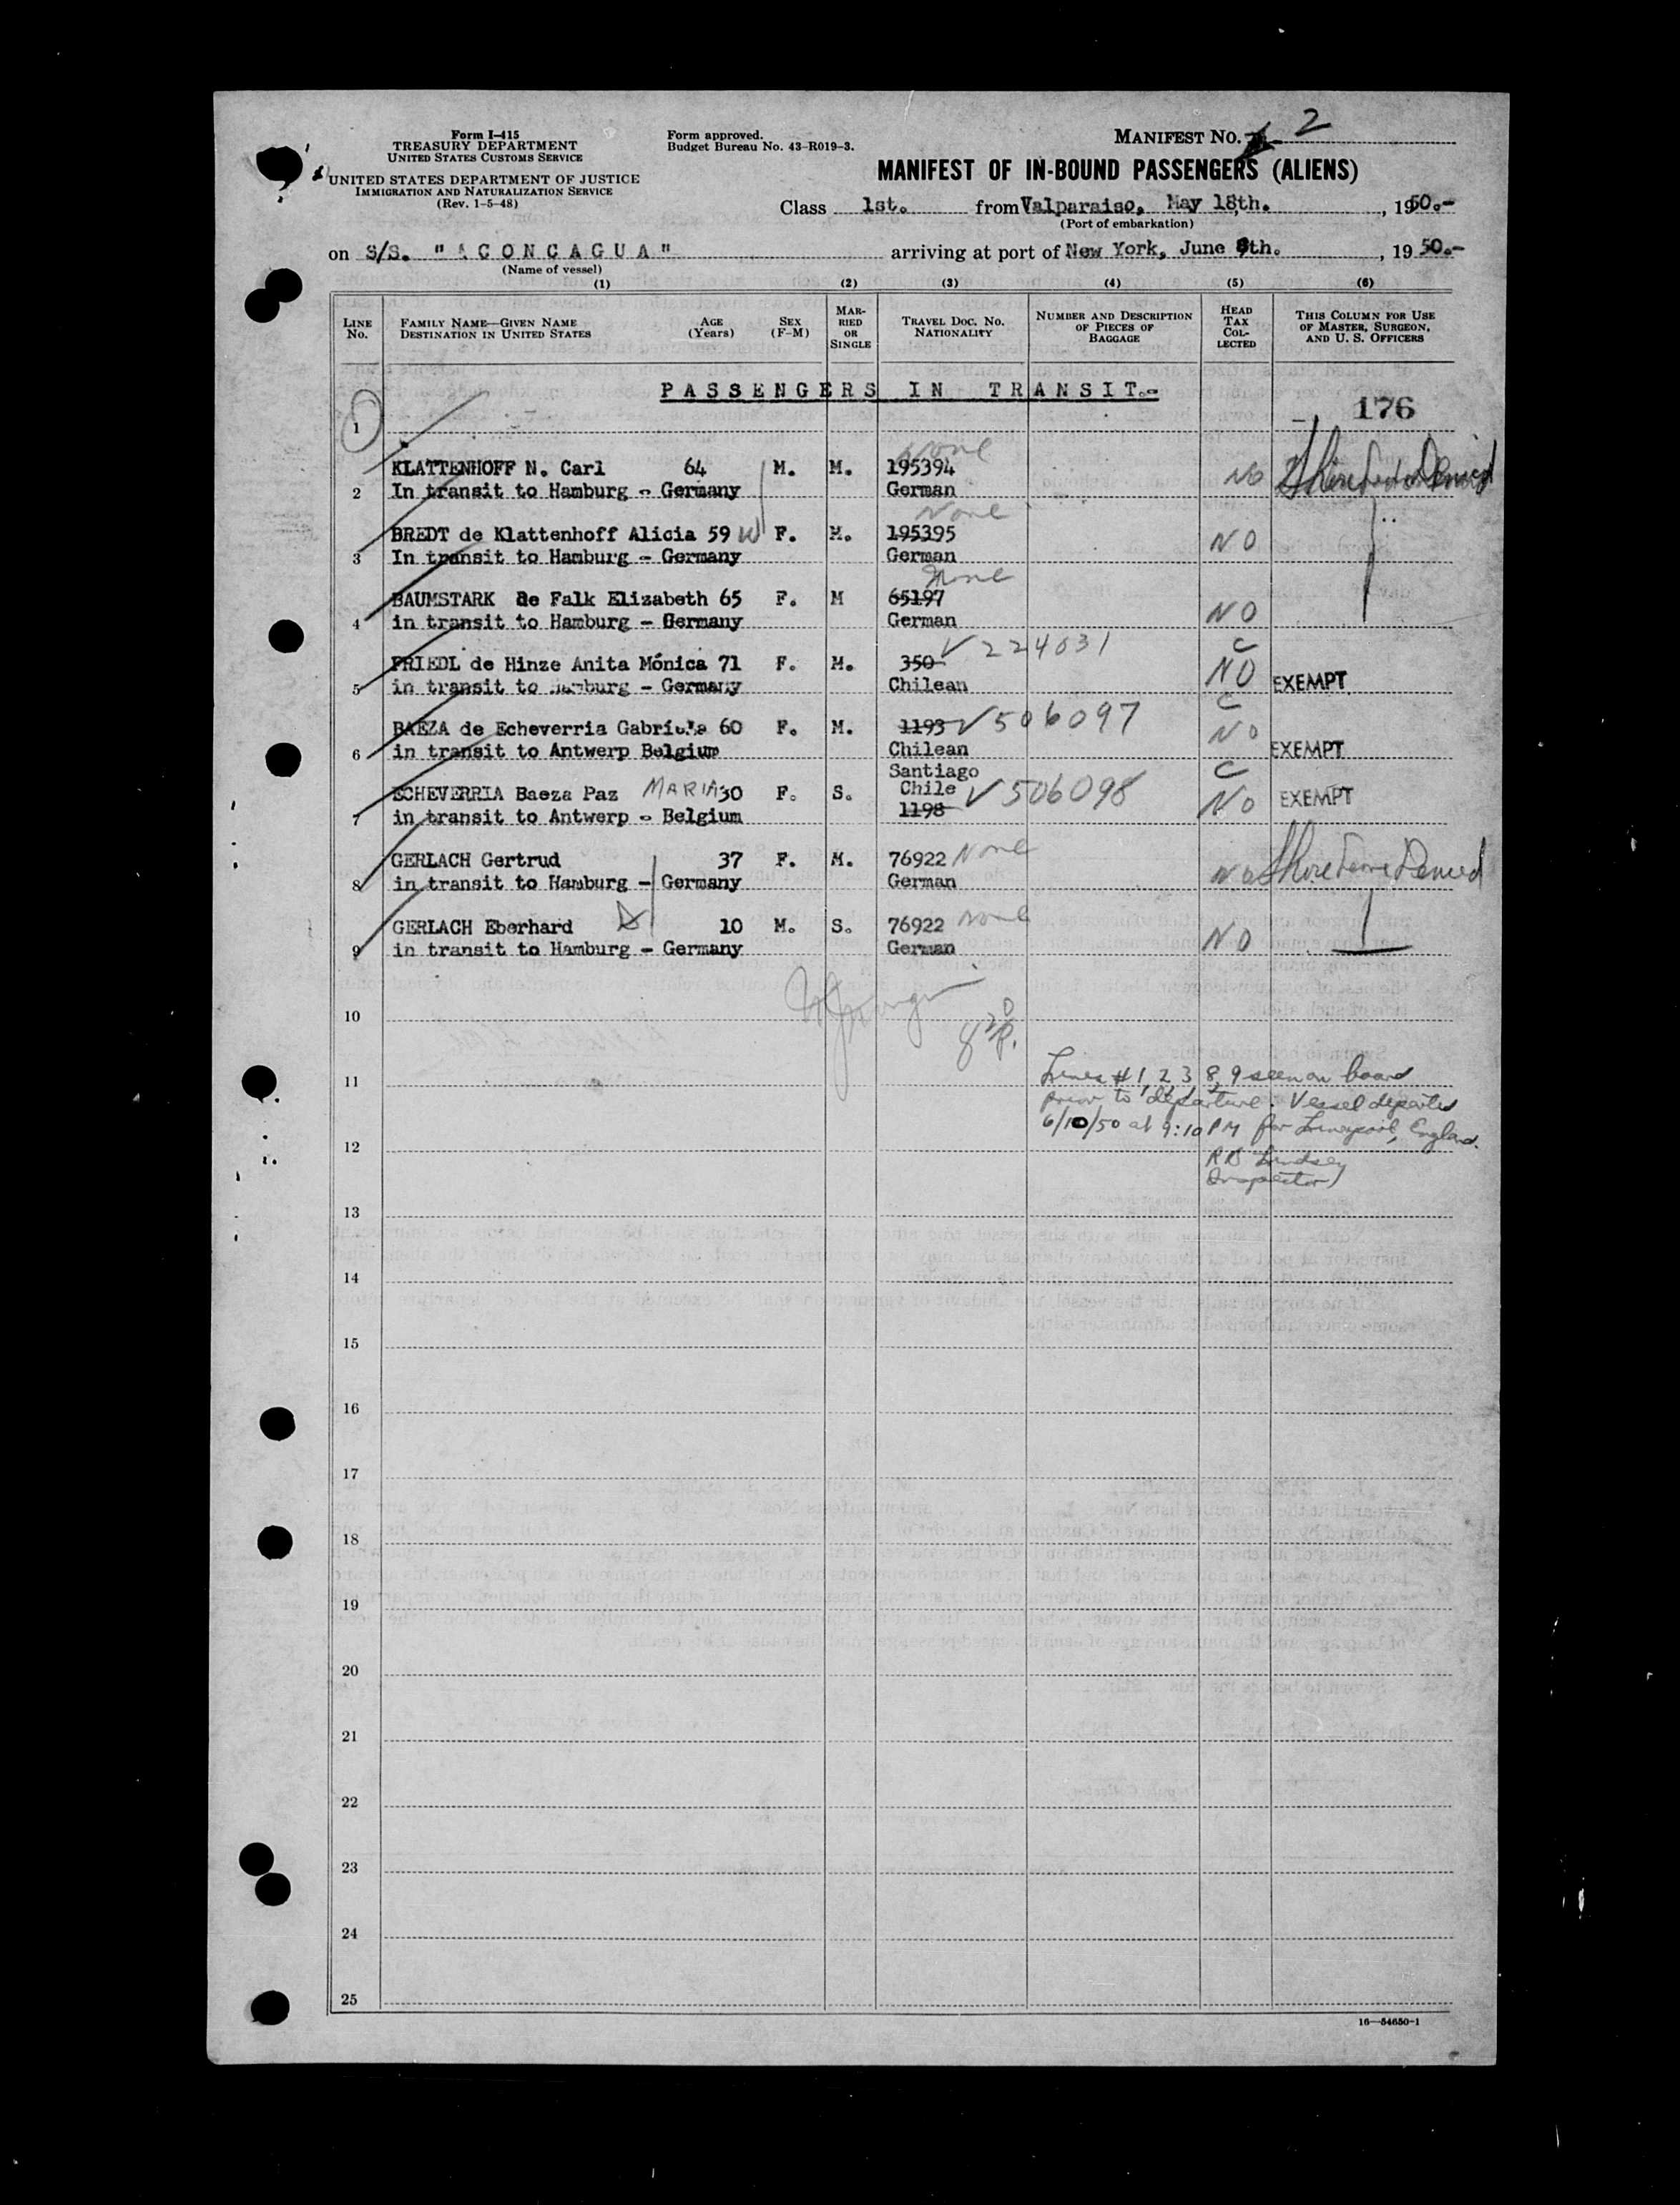 Form I-415
TREASURY DEPARTMENT
UNITED STATES CUSTOMS SERVICE
UNITED STATES DEPARTMENT OF JUSTICE
IMMIGRATION AND NATURALIZATION SERVICE
(Rev. 1-5-48)
Form approved.
Budget Bureau No. 43-R019-3.
MANIFEST NO. 2
MANIFEST OF IN-BOUND PASSENGERS (ALIENS)
Class 1st. from Valparaiso, May 18th., 1950.-
(Port of embarkation)
on S/S. "ACONCAGUA" arriving at port of New York, June 9th., 1950.-
(Name of vessel)
(1) (2) (3) (4) (5) (6)
LINE No. FAMILY NAME—GIVEN NAME DESTINATION IN UNITED STATES AGE (Years) SEX (F-M) MARRIED OR SINGLE TRAVEL DOC. NO. NATIONALITY NUMBER AND DESCRIPTION OF PIECES OF BAGGAGE HEAD TAX COLLECTED THIS COLUMN FOR USE OF MASTER, SURGEON, AND U. S. OFFICERS
PASSENGERS IN TRANSIT.-
1 176
None
KLATTENHOFF N. Carl 64 M. M. 195394 NO Shore Leave Denied
2 In transit to Hamburg - Germany German
None
BREDT de Klattenhoff Alicia 59 W F. M. 195395 NO
3 In transit to Hamburg - Germany German
None
BAUMSTARK de Falk Elizabeth 65 F. M 65197 NO
4 in transit to Hamburg - Germany German
FRIEDL de Hinze Anita Mónica 71 F. M. 350 V 224031 C NO EXEMPT
5 in transit to Hamburg - Germany Chilean
BAEZA de Echeverria Gabriela 60 F. M. 1193 V 506097 C NO EXEMPT
6 in transit to Antwerp Belgium Chilean
Santiago
ECHEVERRIA Baeza Paz MARIA 30 F. S. Chile V 506098 C NO EXEMPT
7 in transit to Antwerp - Belgium 1198
GERLACH Gertrud 37 F. M. 76922 None NO Shore Leave Denied
8 in transit to Hamburg - Germany German
GERLACH Eberhard 10 M. S. 76922 None NO
9 in transit to Hamburg - Germany German
10
11 Lines # 1, 2, 3, 8, 9 seen on board
prior to departure. Vessel departed
6/10/50 at 9:10 PM for Liverpool, England.
12
RB Lindsey
Inspector
13
14
15
16
17
18
19
20
21
22
23
24
25
16—54650-1